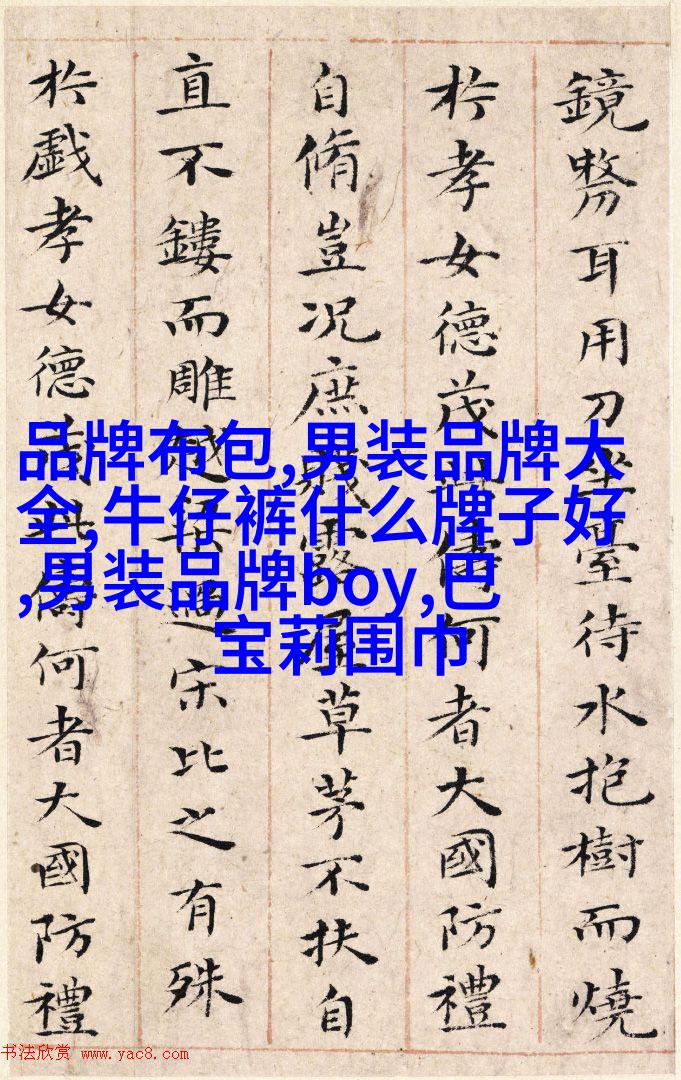 鏡剺耳用刀坐臺待水抱樹而燒
於孝女德茂此儔何者大國防禮
自脩豈況庶賤露屋草茅不扶自
直不鏤而雕越梁過宋比之有殊
於戲孝女德茂此儔何者大國防禮
品牌布包,男装品牌大
全,牛仔裤什么牌子好
,男装品牌boy,巴
宝莉围巾
书法欣赏 www.yac8.com